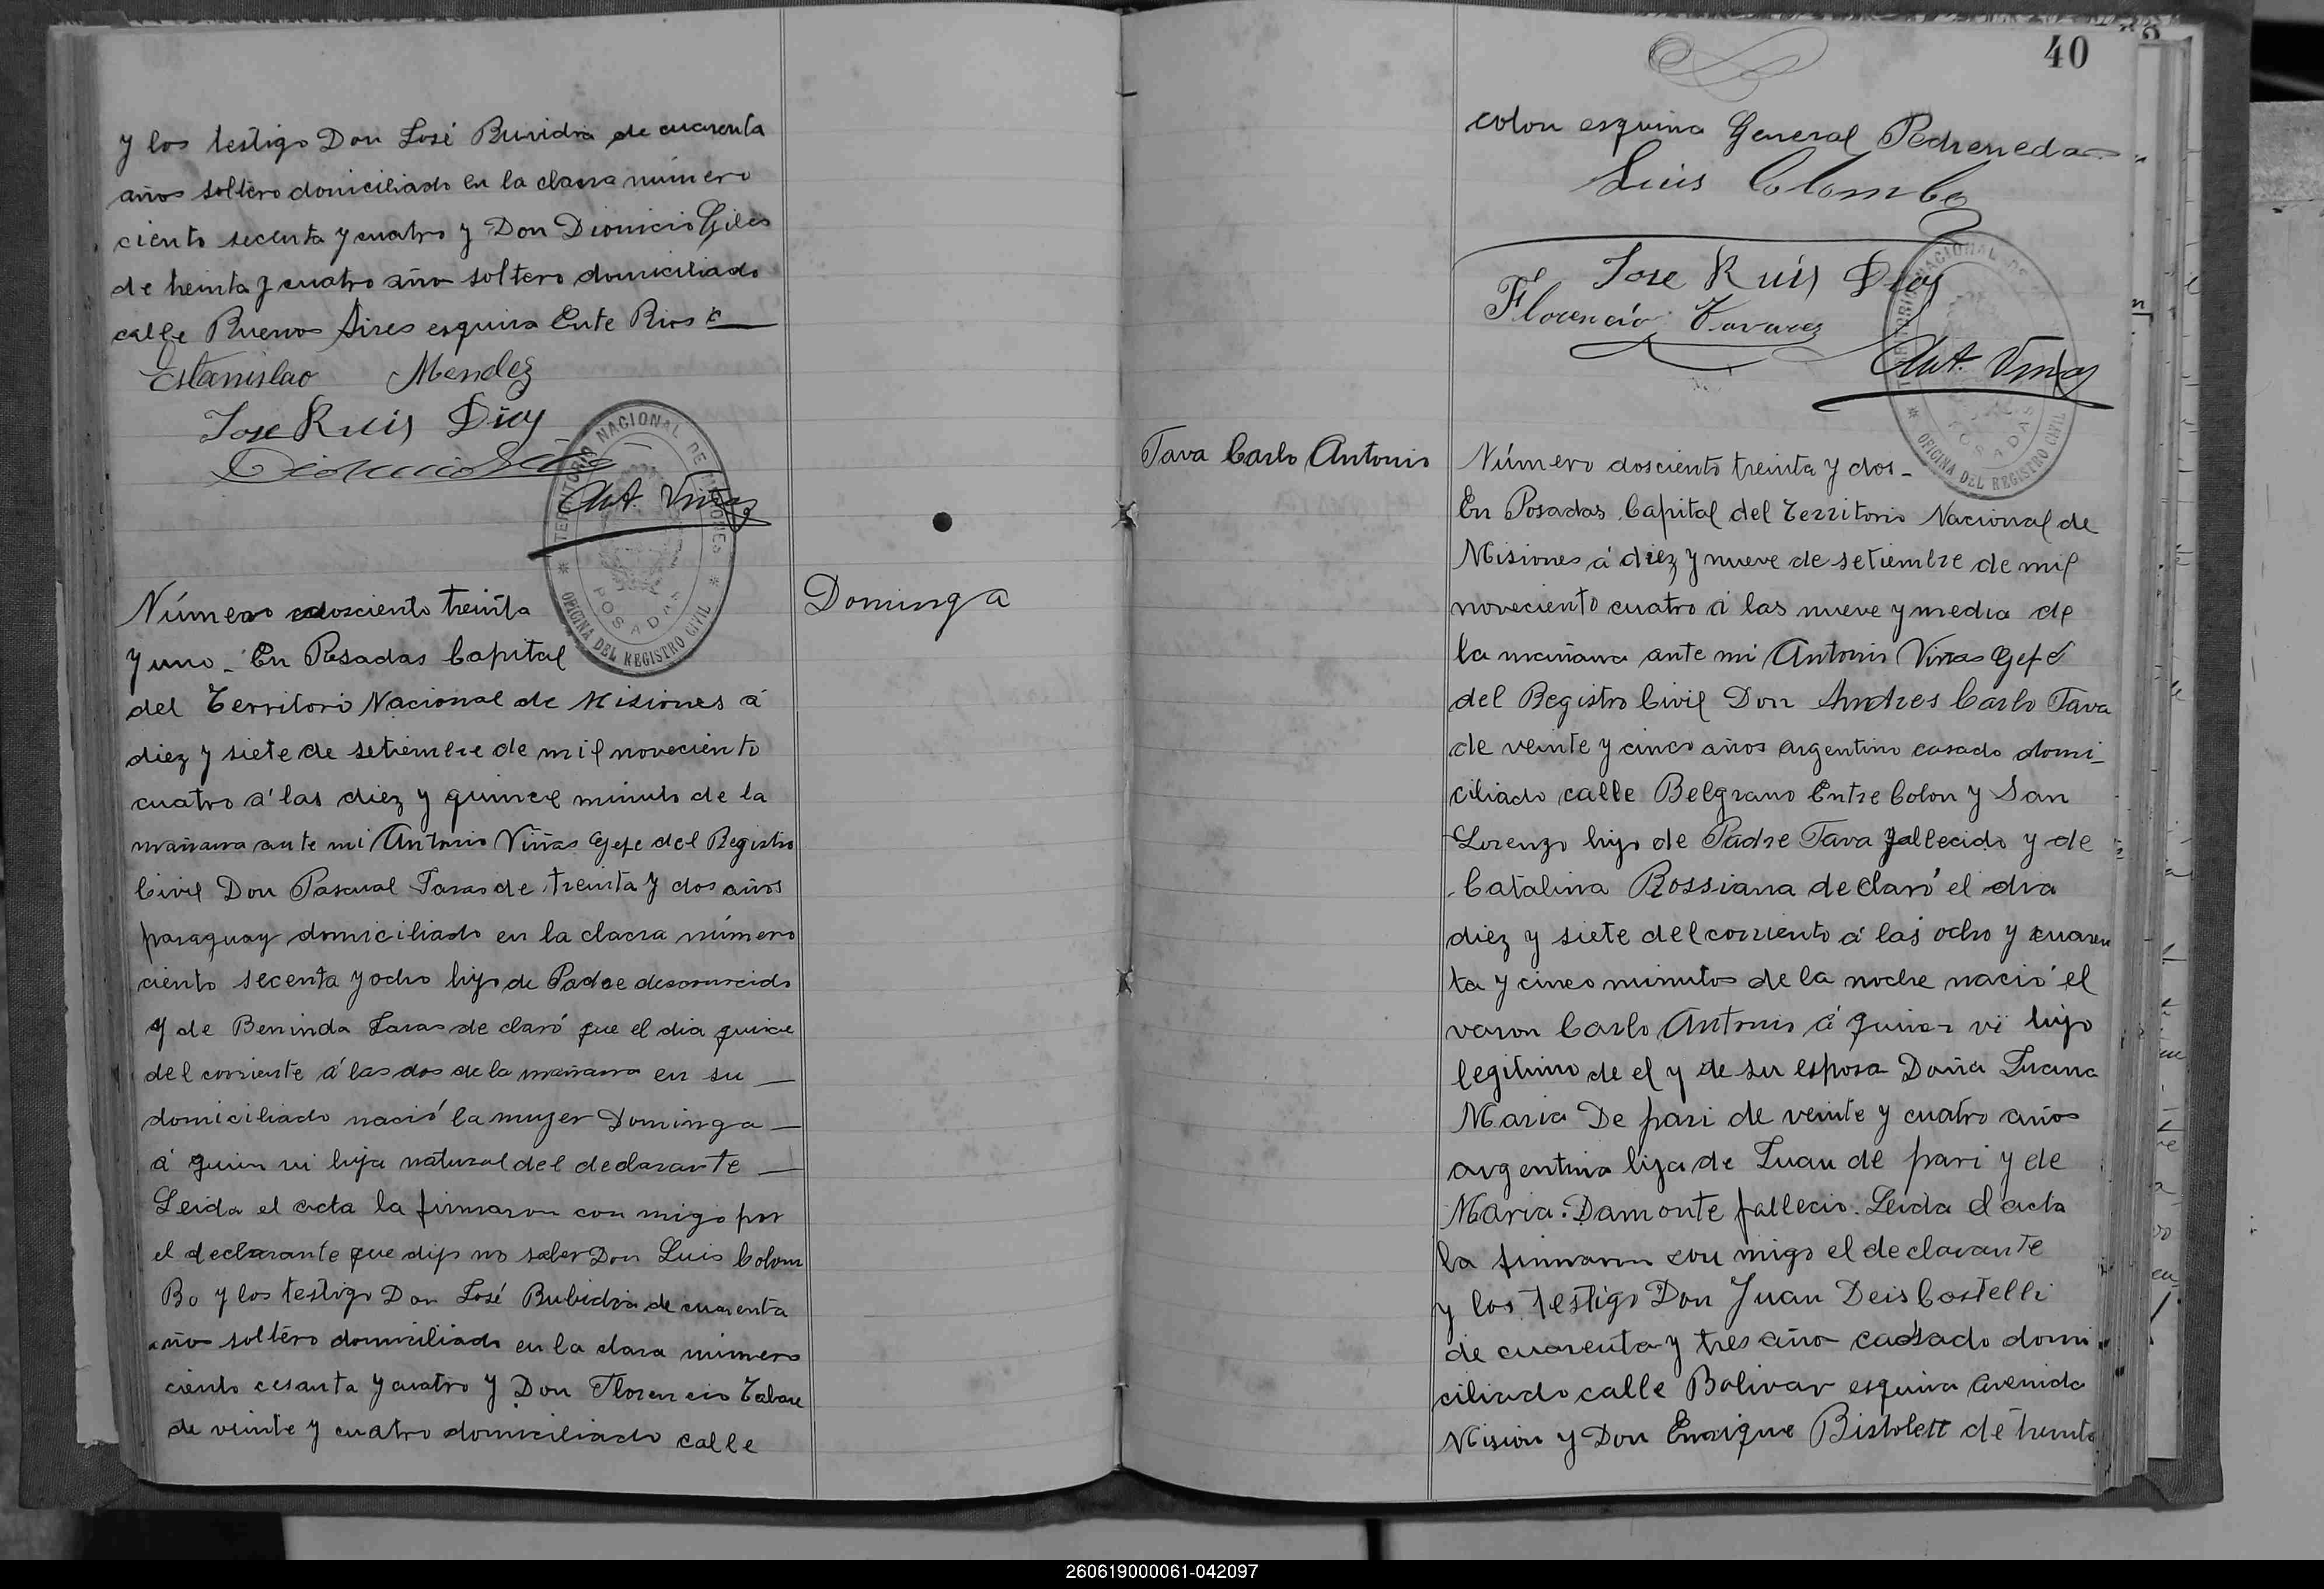 y los testigo Don José Buvidra de cuarenta
años soltero domiciliado en la clacra número
ciento secenta y cuatro y Don Dionicio Giles
de treinta y cuatro año soltero domiciliado
calle Buenos Aires esquina Ente Rios
Estanislao Mendez
Jose Ruis Dias
Ant. Viñas
TERRITORIO NACIONAL DE MISIONES
POSADAS
OFICINA DEL REGISTRO CIVIL
Número dosciento treinta
y uno _ En Posadas Capital
del Territori Nacional de Misiones á
diez y siete de setiembre de mil noveciento
cuatro á las diez y quince minuto de la
mañana ante mi Antonio Viñas Gefe del Registro
Civil Don Pascual Faras de treinta y dos años
paraguay domiciliado en la clacra número
ciento secenta y ocho hijo de Padre desconocido
y de Beninda Faras declaró que el dia quince
del corriente á las dos de la mañana en su _
domiciliado nació la mujer Dominga _
á quien vi hija natural del declarante _
Leida el acta la firmaron con migo por
el declarante que dijo no saber Don Luis Colom
Bo y los testigo Don José Bubidra de cuarenta
año soltero domiciliado en la clacra número
ciento cesanta y cuatro y Don Florencio Tabare
de veinte y cuatro domiciliado calle
Dominga
40
colon esquina General Pedreneda
Luis Colombo
Jose Ruis Dias
Florencio Tavarez
Ant. Viñas
TERRITORIO NACIONAL DE
POSADAS
OFICINA DEL REGISTRO CIVIL
Tava Carlo Antonio
Número dosciento treinta y dos _
En Posadas Capital del Territorio Nacional de
Misiones á diez y nueve de setiembre de mil
noveciento cuatro á las nueve y media de
la mañana ante mi Antonio Viñas Gefe
del Registro Civil Don Andres Carlo Tava
de veinte y cinco años argentino casado domi_
ciliado calle Belgrano Entre Colon y San
Lorenzo hijo de Padre Tava fallecido y de
Catalina Rossiana declaró el dia
diez y siete del corriento á las ocho y cuaren
ta y cinco minutos de la noche nació el
varon Carlo Antonio á quien vi hijo
legitimo de el y de su esposa Doña Juana
Maria De pari de veinte y cuatro años
argentina hija de Juan de pari y de
Maria Damonte fallecio. Leida el acta
la firmaron con migo el declarante
y los testigo Don Juan Deis Costelli
de cuarenta y tres año casado domi
ciliado calle Bolivar esquina Avenida
Mision y Don Enrique Bistolett de treinta
260619000061-042097